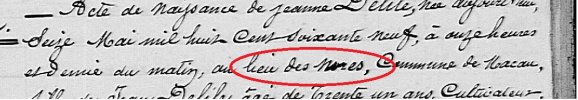 Acte de naissance de jeanne Delile, née aujourd'hui,
Seize Mai mil huit Cent Soixante neuf, à onze heures
et demie du matin, au lieu des Commune de Macau,
fille de Jean Delile, âgé de trente un ans, Cultivateur,